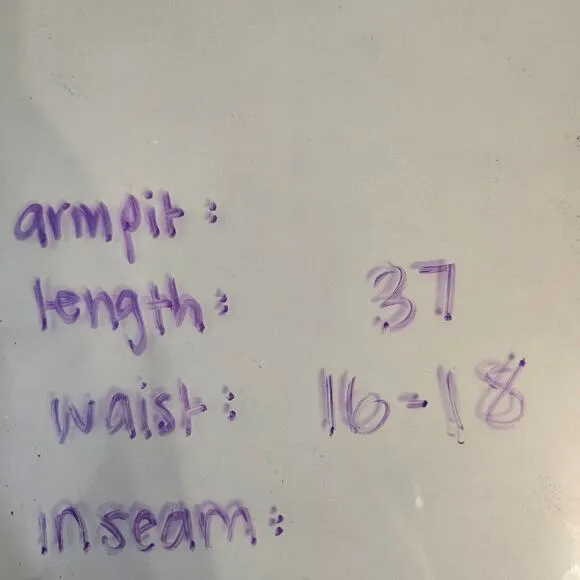 armpit:
length: 37
waist: 16-18
inseam: